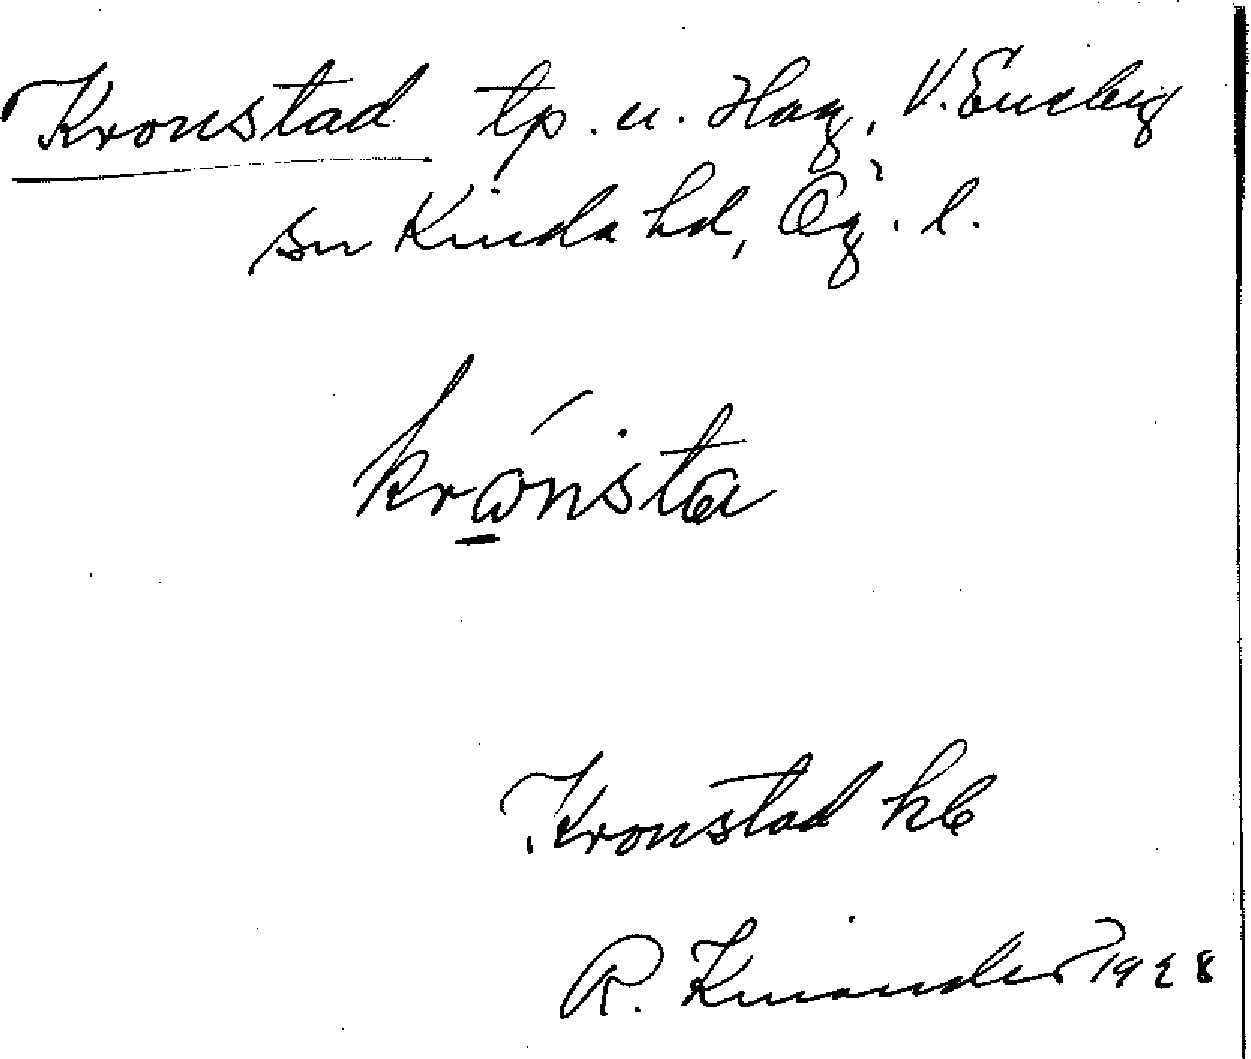 Kronstad tp. u. Hag, V. Eneby
sn Kinda hd, Ög. l.
krώnsta
Kronstad kb
R. Kinander 1928